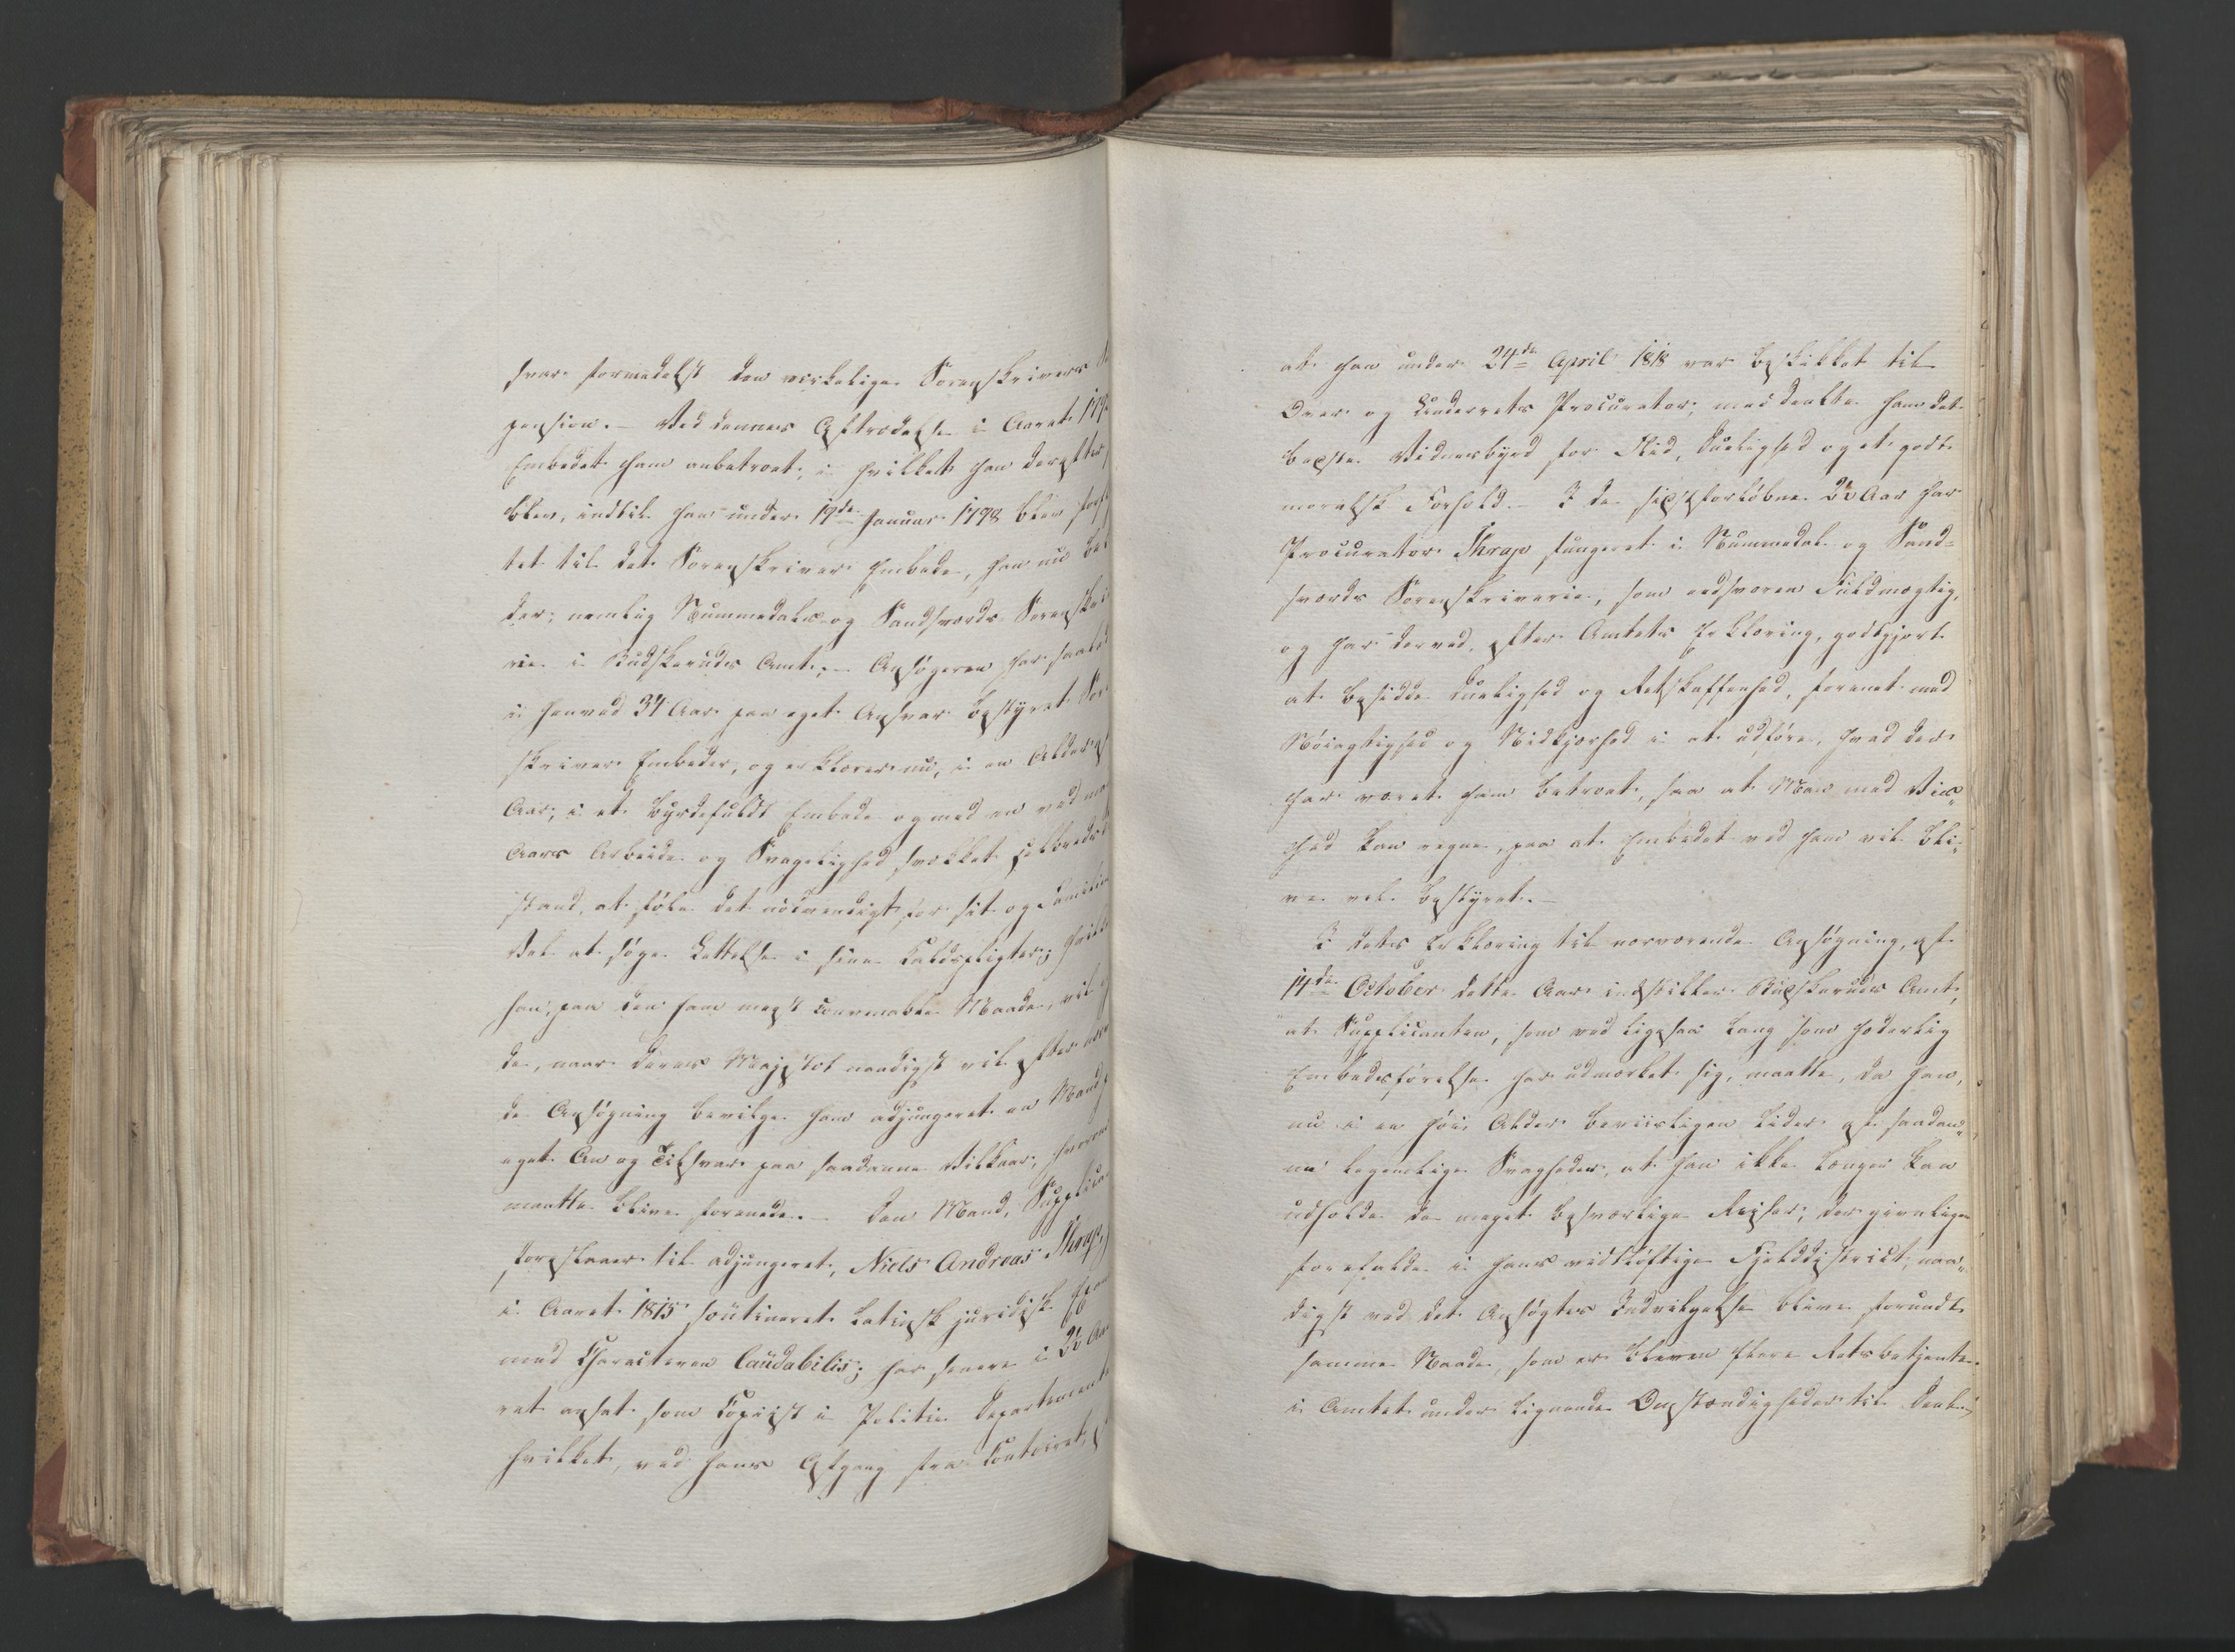 svar formedelst den virkelige Sorenskrivers
pension. – Ved dennes Aftrædelse i Aaret 179
Embedet ham anbetroet, i hvilket han derefter
blev, indtil han under 19de Januar 1798 blev forfl
tet til det Sorenskriver Embede, han nu bek
der; nemlig Nummedals og Sandsværds Sorenskri
rie i Budskeruds Amt; – Ansøgeren har saaled
i henved 34 Aar paa eget Ansvar bestyret Sor
skriver Embeder, og erklærer nu, i en Alder af
Aar, i et byrdefuldt Embede og med en ved man
Aars Arbeide og Svagelighed svækket Helbreds til
stand, at føle det nødvendigt for sit og Familie
Vel at søge Lettelse i sine Kaldspligter; hvilke
han, paa den ham mest convenable Maade, vil
de, naar Deres Majestæt naadigst vil efter
de Ansøgning bevilge ham adjungeret en Mand
eget An og Tilsvar paa saadanne Vilkaar, hvorom
maatte blive forenede. – Den Mand, Supplican
foreslaaer til adjungeret, Niels Andreas Thrap,
i Aaret 1815 soutineret latinsk juridisk Exam
med Characteren laudabilis; har senere i 2½ Aar
ret ansat som Copiist i Politie Departement
hvilket, ved hans Afgang fra Contoiret,
at han under 24de April 1818 var beskikket til
Over og Underrets Procurator, meddeelte ham det
bedste Vidnesbyrd for Flid, Duelighed og et godt
moralsk Forhold. – I de sidstforløbne 2½ Aar har
Procurator Thrap fungeret i Nummedal og Sand=
sværds Sorenskriverie, som eedsvoren Fuldmægtig,
og har derved, efter Amtets Erklæring, godtgjort
at besidde Duelighed og Retskaffenhed, forenet med
Nøiagtighed og Nidkjærhed i at udføre, hvad der
har været ham betroet, saa at Man med Vis„
hed kan regne paa at Embedet ved ham vil bli„
ve vel bestyret. –
I dets Erklæring til nærværende Ansøgning, af
14de October dette Aar indstiller Budskeruds Amt,
at Supplicanten, som ved ligesaa lang som hæderlig
Embedsførelse har udmærket sig, maatte, da han,
nu i en høi Alder beviisligen lider af saadan„
ne legemlige Svagheder, at han ikke længer kan
udholde de meget besværlige Reiser, der jevnligen
forefalde i hans vidtløftige Fjelddistrict, naa„
digst ved det Ansøgtes Indvilgelse blive forundt
samme Naade, som er bleven flere Retsbetjente
i Amtet under lignende Omstændigheder til Deel;